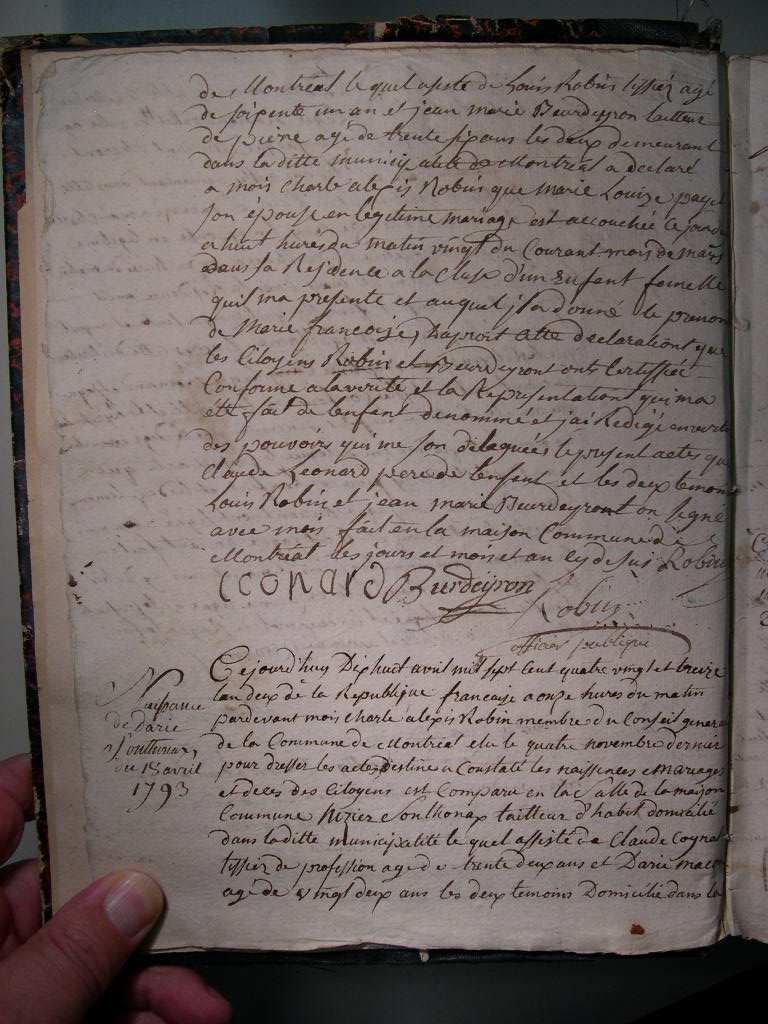 de Montréal le quel assisté de Louis Robin tissier agé
de soixente un an et jean marie Beurdeyron tailleur
de pierre agé de trente six ans les deux demeurant
dans la ditte municipalité de Montréal a declaré
a mois Charle alexis Robin que marie Louise
son épouse en legitime mariage est accouchée ce jourd
a huit hures du matin vingt du Courant mois de mars
dans sa Residence a la Cluse d'un Enfent femelle
quil ma presente et auquel il a donné le prenom
de Marie francoise, Daprest cette declarationt que
les Citoyens Robin et Beurdeyront ont Certiffiée
Conforme a la verite et la Representationt qui ma
eté fait de lenfent denommé et jai Redigé en vertu
des pouvoirs qui me son delaguées le present actes que
Claude Leonard pere de lenfent et les deux temoin
Louis Robin et jean marie Beurdeyront on Signé
avec mois fait en la maison Commune de
Montréal les jours et mois et an cy desus Robin
leonard Burdeyron Robin
officier publique
Cejourd'huy Dixhuit avril mil sept Cent quatre vingt et treize
lan deux de la Republique francaise a onze hures du matin
pardevant mois Charle alexis Robin membre du Conseil general
de la Commune de Montréal elu le quatre novembre dernier
pour dresser les actes destiné a Constaté les naissences mariages
et déces des Citoyens est Comparu en la Salle de la maison
Commune Sonthonax tailleur d'habit domicilié
dans laditte municipalité le quel assisté de Claude Cognat
tissier de profession agé de trente deux ans et Darie
agé de vingt deux ans les deux temoins Domicilié dans la
Naissance
de Darie
Sonthonax
du 18 avril
1793